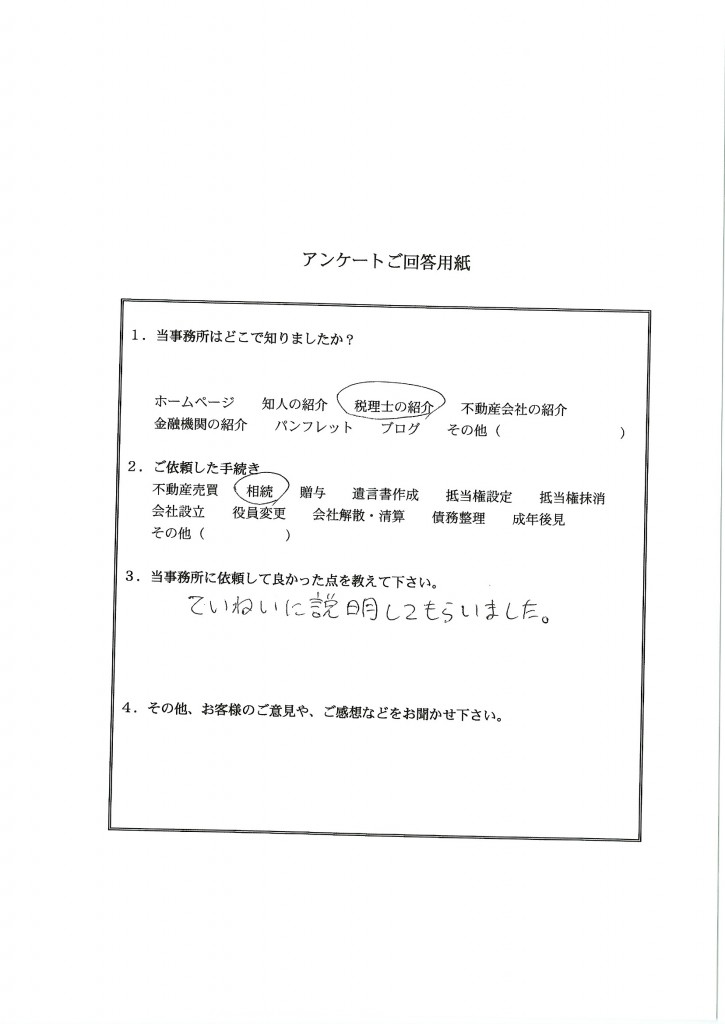 アンケートご回答用紙
１．当事務所はどこで知りましたか？
ホームページ　知人の紹介　税理士の紹介　不動産会社の紹介
金融機関の紹介　パンフレット　ブログ　その他（　　　　　　　）
２．ご依頼した手続き
不動産売買　相続　贈与　遺言書作成　抵当権設定　抵当権抹消
会社設立　役員変更　会社解散・清算　債務整理　成年後見
その他（　　　　　）
３．当事務所に依頼して良かった点を教えて下さい。
ていねいに説明してもらいました。
４．その他、お客様のご意見や、ご感想などをお聞かせ下さい。